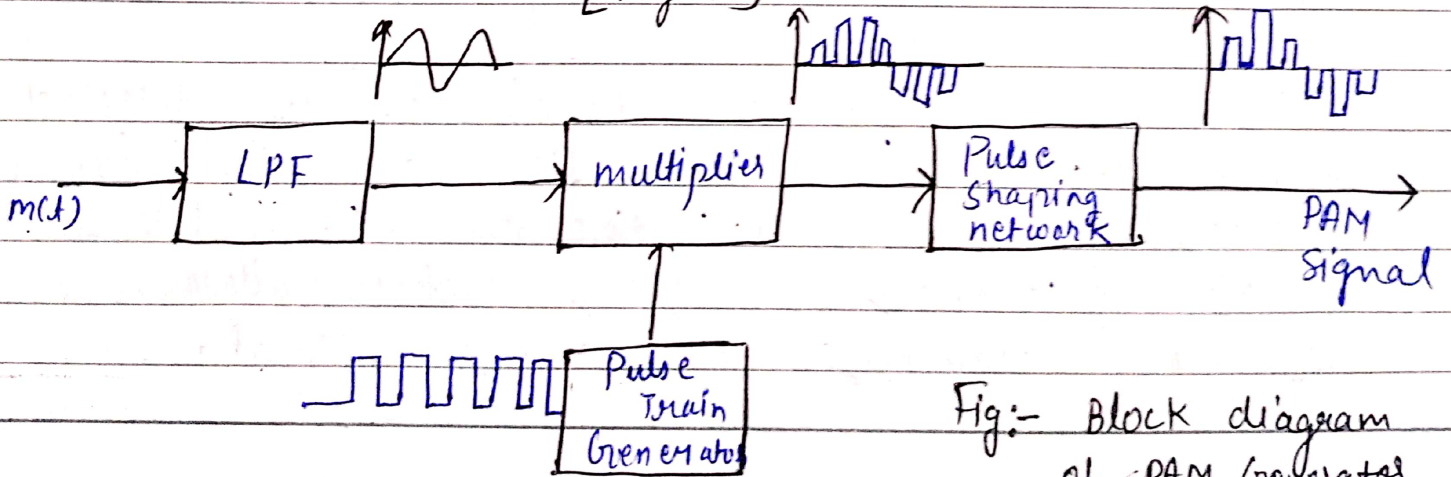 m(t)
LPF
multiplier
Pulse
Shaping
network
PAM
Signal
Pulse
Train
Generator
Fig:- Block diagram
of PAM Generator